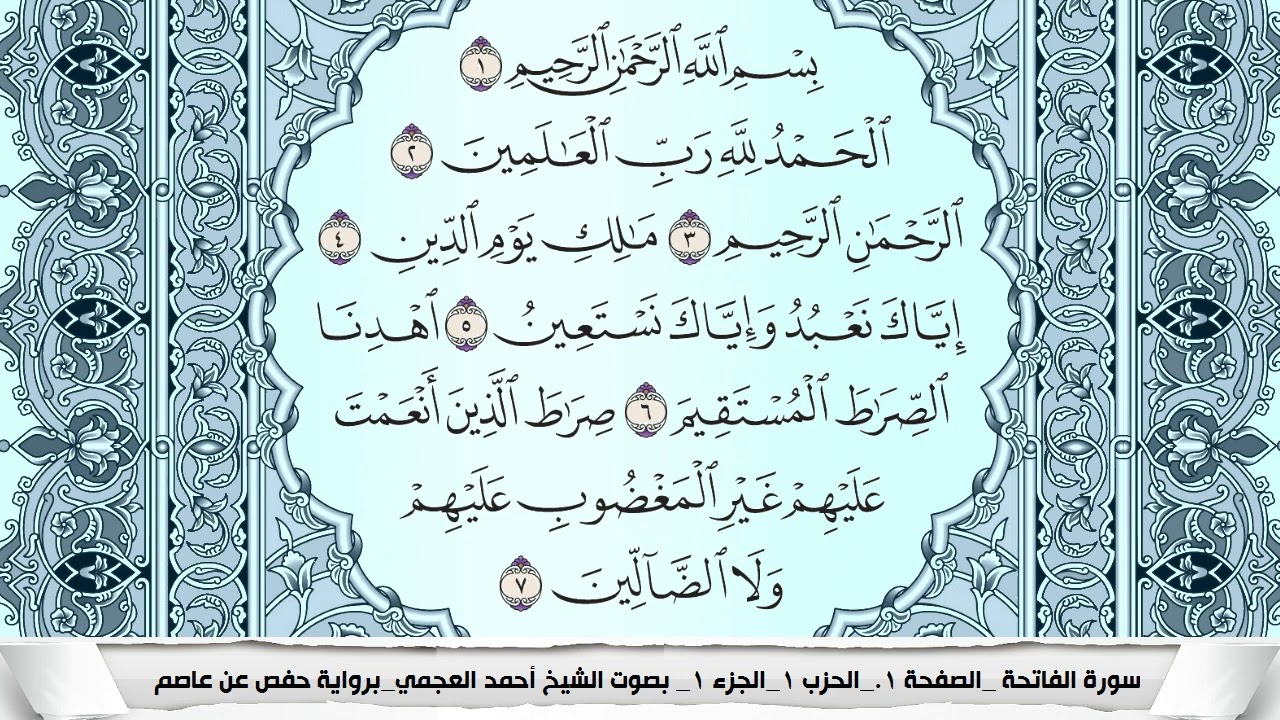 بِسْمِ ٱللَّهِ ٱلرَّحْمَٰنِ ٱلرَّحِيمِ ١
ٱلْحَمْدُ لِلَّهِ رَبِّ ٱلْعَٰلَمِينَ ٢
ٱلرَّحْمَٰنِ ٱلرَّحِيمِ ٣ مَٰلِكِ يَوْمِ ٱلدِّينِ ٤
إِيَّاكَ نَعْبُدُ وَإِيَّاكَ نَسْتَعِينُ ٥ ٱهْدِنَا
ٱلصِّرَٰطَ ٱلْمُسْتَقِيمَ ٦ صِرَٰطَ ٱلَّذِينَ أَنْعَمْتَ
عَلَيْهِمْ غَيْرِ ٱلْمَغْضُوبِ عَلَيْهِمْ
وَلَا ٱلضَّآلِّينَ ٧
سورة الفاتحة _الصفحة ١._الحزب ١_الجزء ١_ بصوت الشيخ أحمد العجمي_برواية حفص عن عاصم